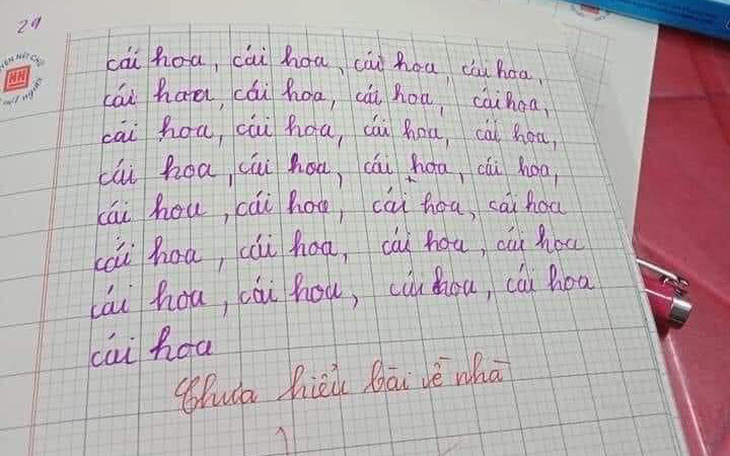 29
cái hoa, cái hoa, cái hoa, cái hoa,
cái hoa, cái hoa, cái hoa, cái hoa,
cái hoa, cái hoa, cái hoa, cái hoa,
cái hoa, cái hoa, cái hoa, cái hoa,
cái hoa, cái hoa, cái hoa, cái hoa
cái hoa, cái hoa, cái hoa, cái hoa
cái hoa, cái hoa, cái hoa, cái hoa
cái hoa
Chưa hiểu bài về nhà
HH